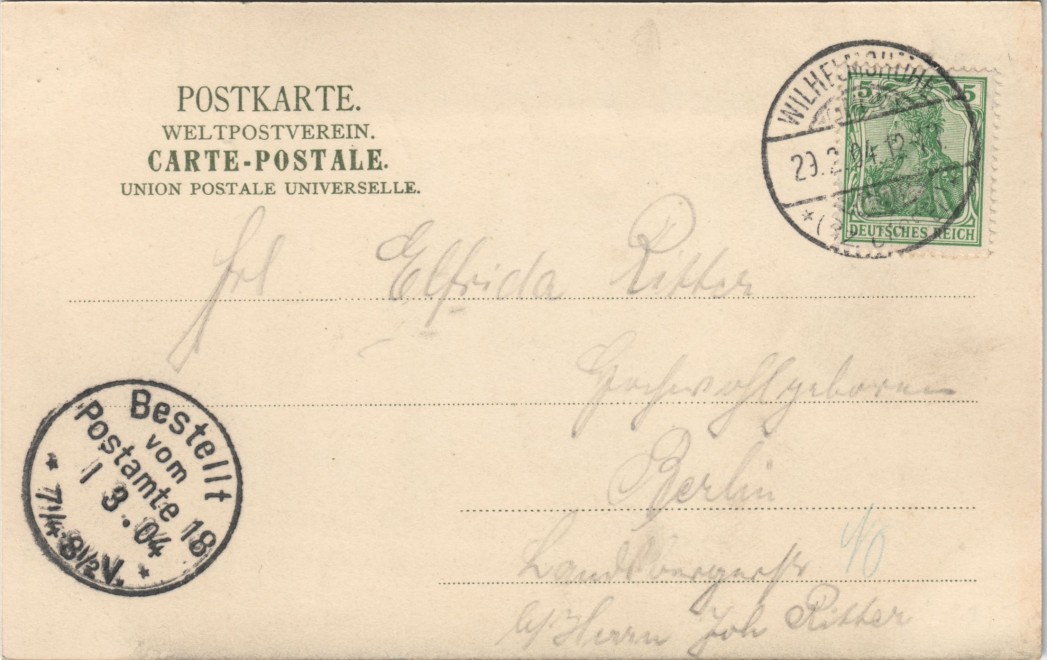 POSTKARTE.
WELTPOSTVEREIN.
CARTE-POSTALE.
UNION POSTALE UNIVERSELLE.
5 5
DEUTSCHES REICH
29.2.04.12-
Frl Elfrida Ritter
Hochwohlgeboren
Berlin
NO
Landsbergerstr
b/Herrn Joh Ritter
Bestellt
vom
Postamte 18
1 3.04
7¼-8½V.